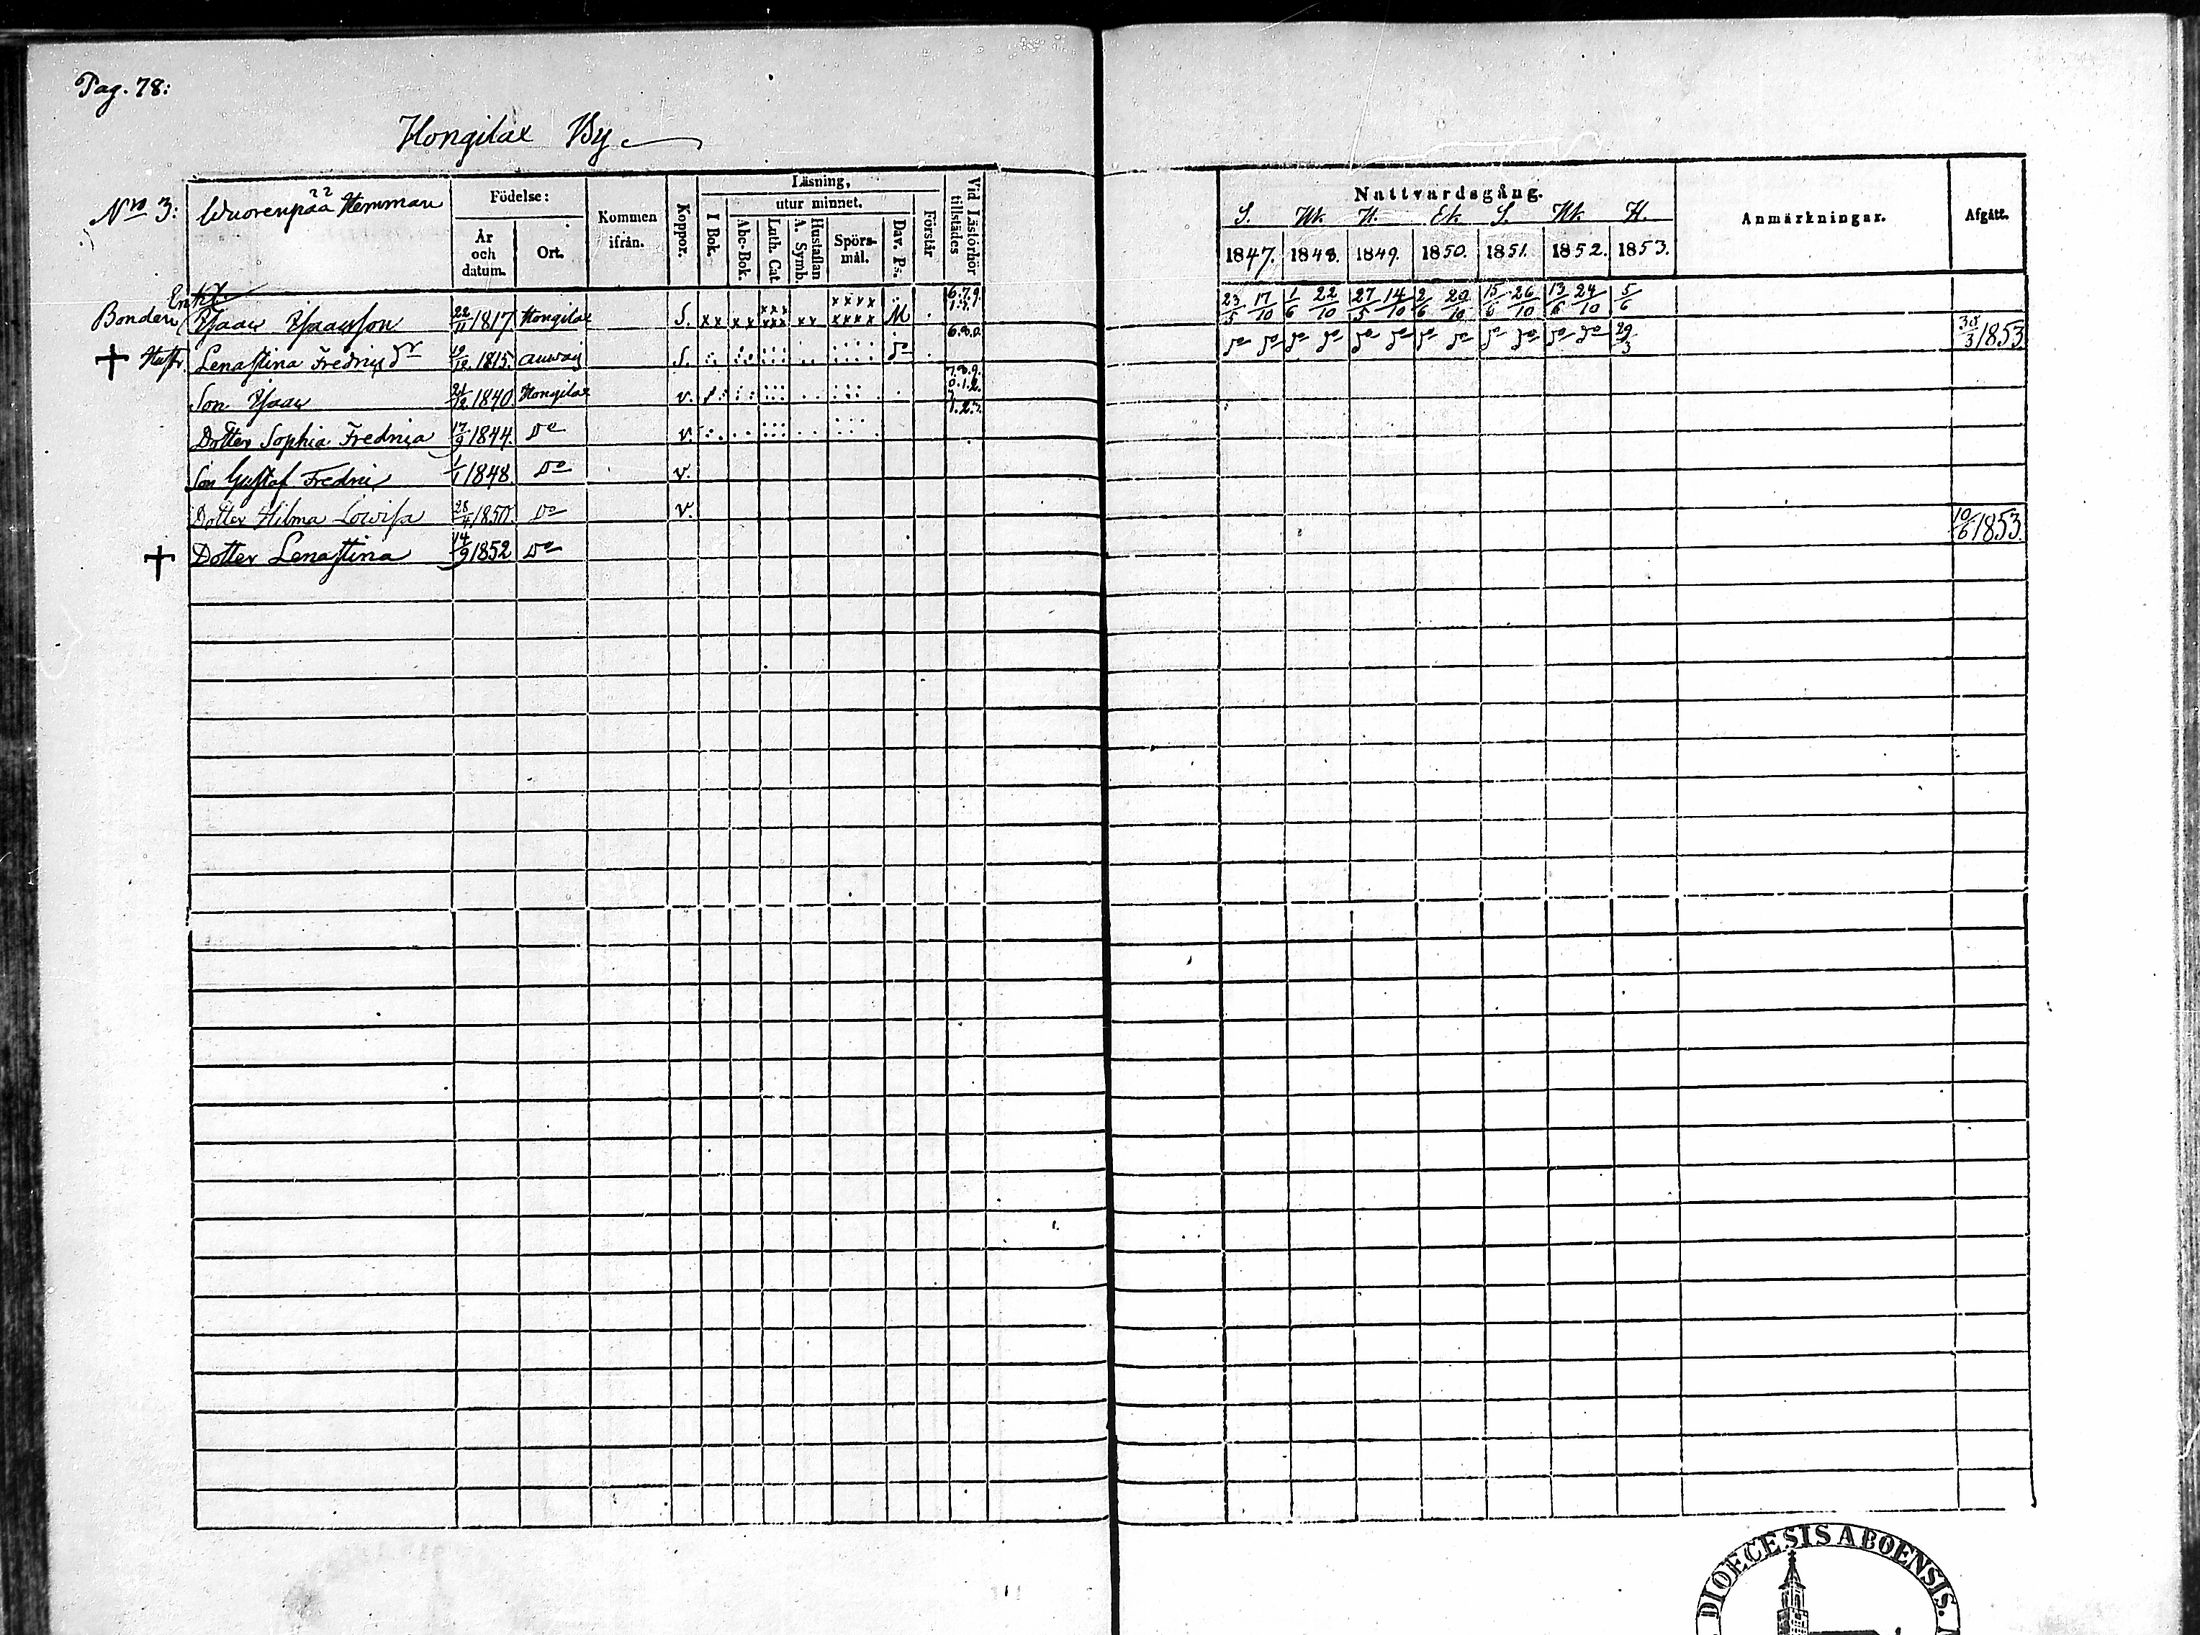 Pag. 78:
Hongilax By
Nro 3: Wuorenpää Hemman
Födelse:
År och datum.
Ort.
Kommen ifrån.
Koppor.
Läsning,
I Bok.
utur minnet.
Abc-Bok.
Luth. Cat.
A. Symb. Hustaflan
Spörsmål.
Dav. Ps.
Förstår
Vid Läsförhör tillstädes
Nattvardsgång.
1847. 1848. 1849. 1850. 1851. 1852. 1853.
Anmärkningar.
Afgått.
Enkl.
Bonden Isaac Isaacsson 22/11 1817 Hongilax S. M 23/5 17/10 1/6 22/10 27/5 14/10 2/6 20/10 15/6 26/10 13/6 24/10 5/6
† Hustr. Lenastina Fredrix dr 1815. S. 29/3 /3 1853.
Son Isaac 21/12 1840 Hongilax v.
Dotter Sophia Fredrica 17/9 1844. Do v.
Son Gustaf Fredric 1/1 1848 Do v.
Dotter Hilma Lowisa 28/4 1850. Do v.
† Dotter Lenastina 14/9 1852 Do 10/6 1853.
DIOECESIS ABOENSIS.